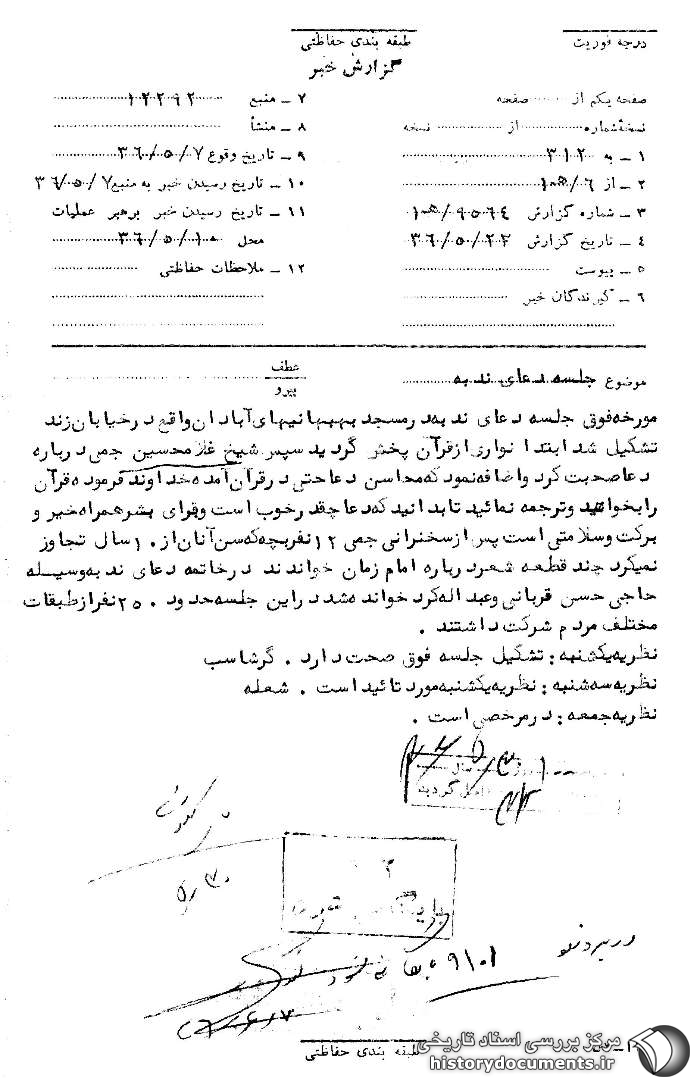 درجه فوریت
طبقه بندی حفاظتی
گزارش خبر
صفحه یکم از ........ صفحه
نسخهٔ شماره ........ از ........ نسخه
۱ ـ به ۳۱۲
۲ ـ از ۶/ﻫ۱۰
۳ ـ شماره گزارش ۱۰ﻫ/۹۵۶۴
۴ ـ تاریخ گزارش ۳۶/۵۰/۲۲
۵ ـ پیوست
۶ ـ گیرندگان خبر
۷ ـ منبع ۱۲۲۹۲
۸ ـ منشأ
۹ ـ تاریخ وقوع ۳۶/۵۰/۷
۱۰ ـ تاریخ رسیدن خبر به منبع ۳۶/۵۰/۷
۱۱ ـ تاریخ رسیدن خبر برهبر عملیات
محل ۳۶/۵۰/۱۰
۱۲ ـ ملاحظات حفاظتی
موضوع جلسه دعای ندبه
عطف
پیرو
مورخه فوق جلسه دعای ندبه در مسجد بهبهانیهای آبادان واقع در خیابان زند
تشکیل شد ابتدا نواری از قرآن پخش گردید سپس شیخ غلامحسین جمی درباره
دعا صحبت کرد و اضافه نمود که محاسن دعا حتی در قرآن آمده خداوند فرموده قرآن
را بخوانید و ترجمه نمائید تا بدانید که دعا چقدر خوب است و برای بشر همراه خیر و
برکت و سلامتی است پس از سخنرانی جمی ۱۲ نفر بچه که سن آنان از ۱۰ سال تجاوز
نمیکرد چند قطعه شعر درباره امام زمان خواندند در خاتمه دعای ندبه وسیله
حاجی حسن قربانی و عبداله کرد خوانده شد در این جلسه حدود ۲۵۰ نفر از طبقات
مختلف مردم شرکت داشتند .
نظریه یکشنبه : تشکیل جلسه فوق صحت دارد . گرشاسب
نظریه سه شنبه : نظریه یکشنبه مورد تائید است . شعله
نظریه جمعه : در مرخصی است .
سال
گردید
۵/۳۰
۹۱۰۱
طبقه بندی حفاظتی
مرکز بررسی اسناد تاریخی
historydocuments.ir